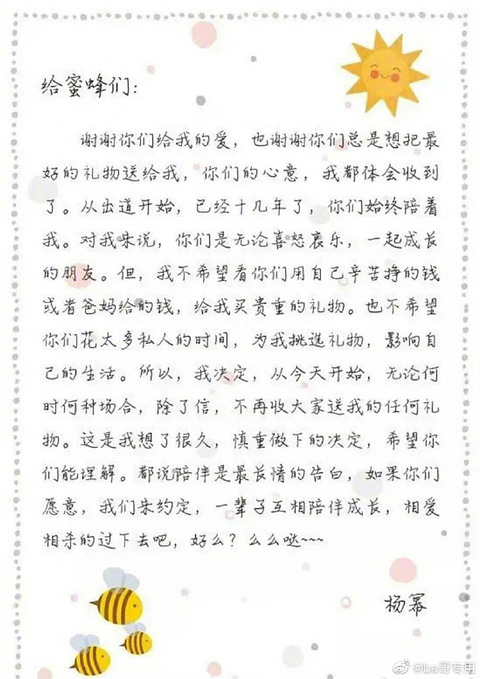 给蜜蜂们:
谢谢你们给我的爱，也谢谢你们总是想把最
好的礼物送给我，你们的心意，我都体会收到
了。从出道开始，已经十几年了，你们始终陪着
我。对我来说，你们是无论喜怒哀乐，一起成长
的朋友。但，我不希望看你们用自己辛苦挣的钱
或者爸妈给的钱，给我买贵重的礼物。也不希望
你们花太多私人的时间，为我挑选礼物，影响自
己的生活。所以，我决定，从今天开始，无论何
时何种场合，除了信，不再收大家送我的任何礼
物。这是我想了很久，慎重做下的决定，希望你
们能理解。都说陪伴是最长情的告白，如果你们
愿意，我们来约定，一辈子互相陪伴成长，相爱
相杀的过下去吧，好么？么么哒~~~
杨幂
@ba哥专用